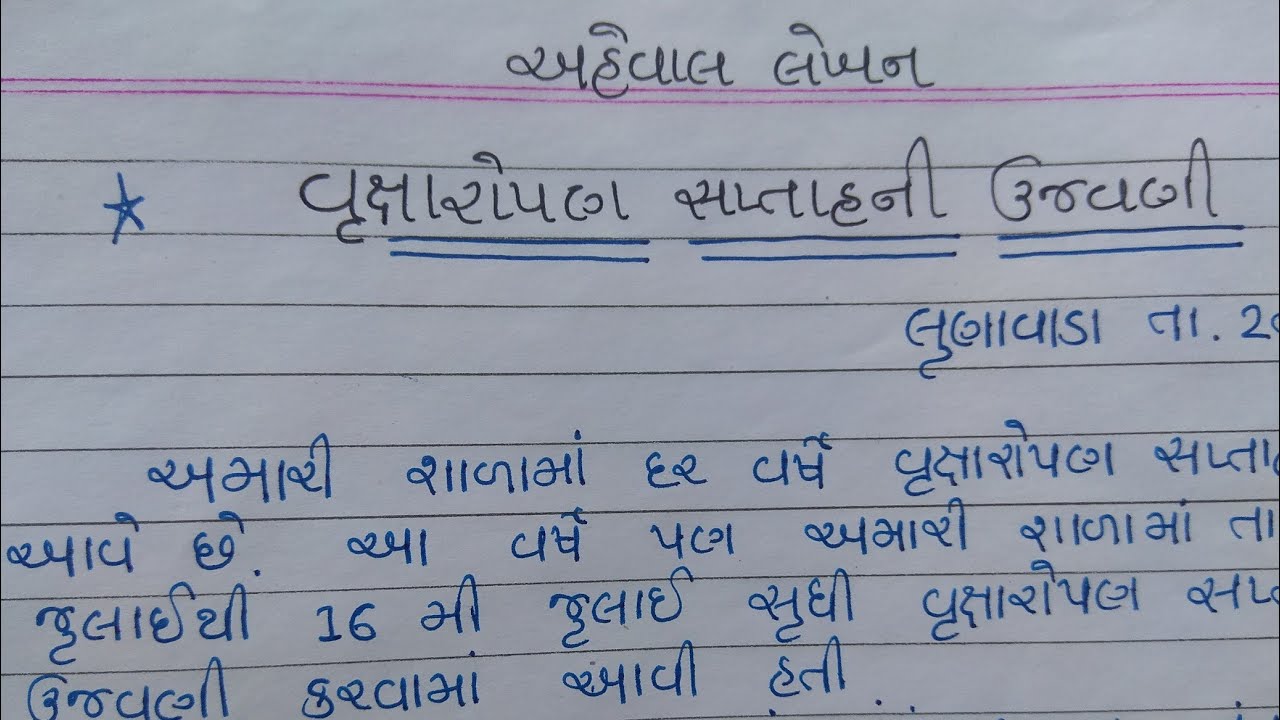 અહેવાલ લેખન
વૃક્ષારોપણ સપ્તાહની ઉજવણી
લુણાવાડા તા. 2
અમારી શાળામાં દર વર્ષે વૃક્ષારોપણ
આવે છે. આ વર્ષે પણ અમારી શાળામાં તા
જૂલાઈથી 16 મી જૂલાઈ સુધી વૃક્ષારોપણ
ઉજવણી કરવામાં આવી હતી.